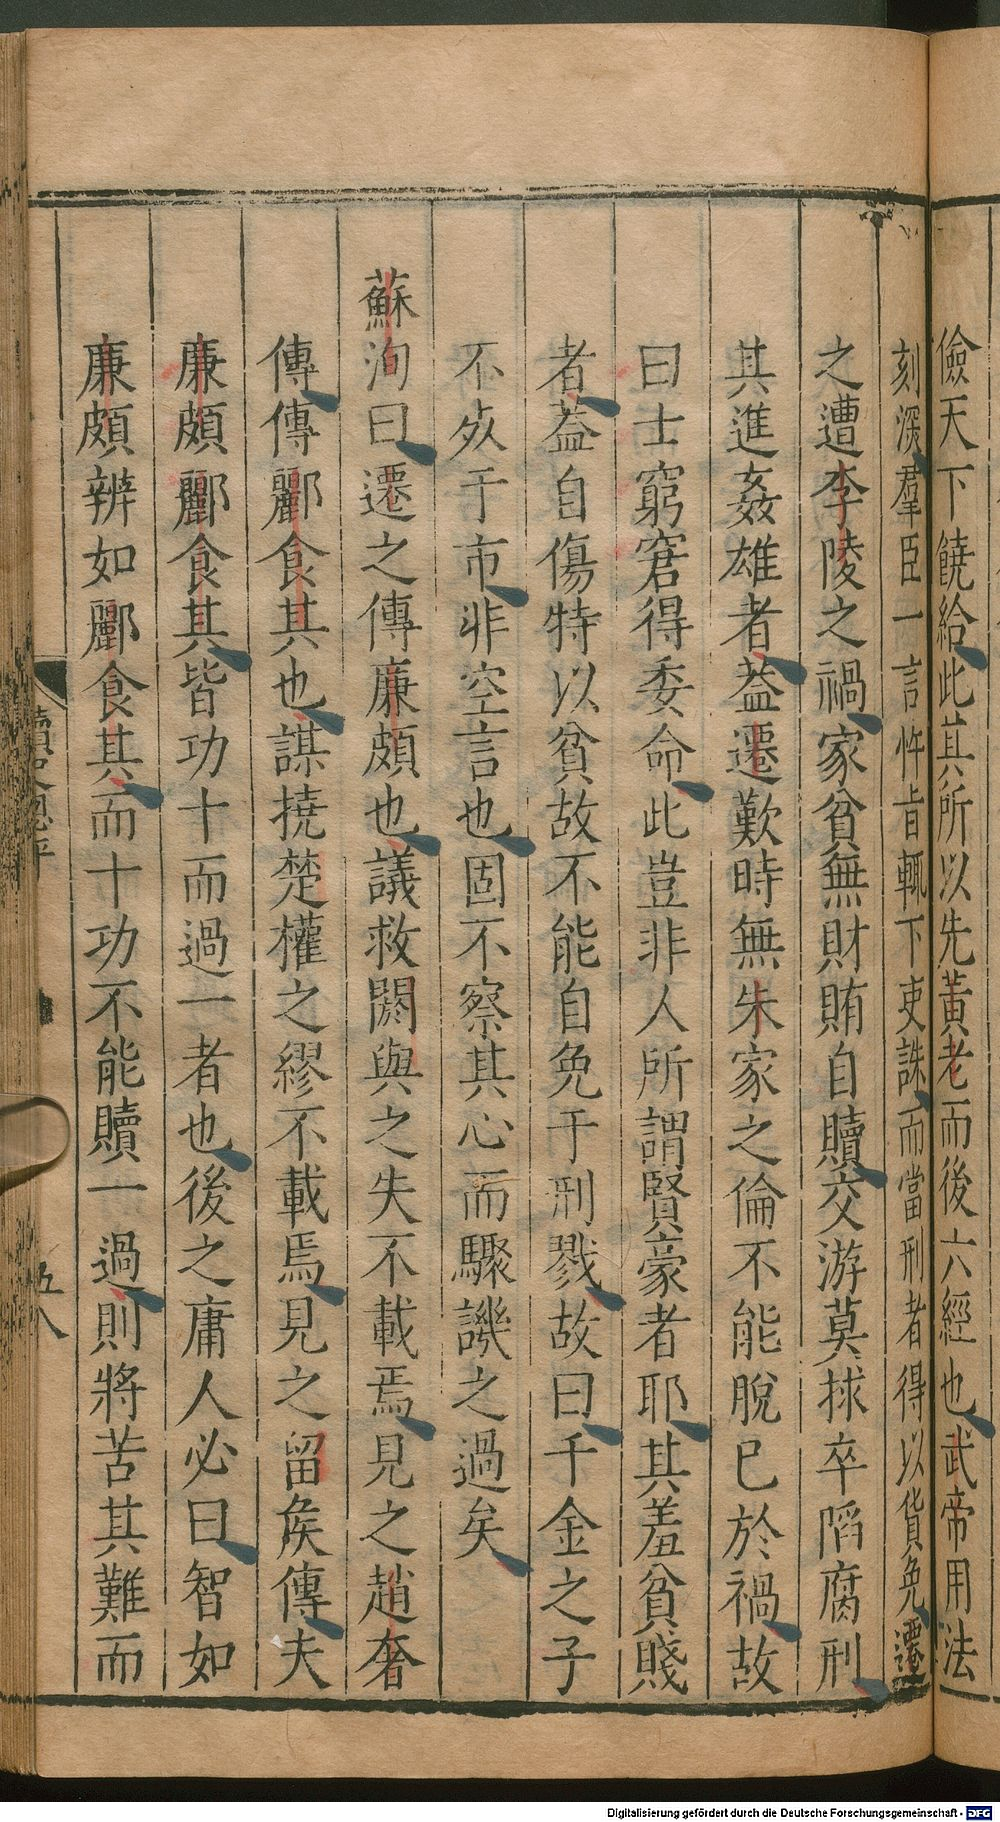 儉天下饒給此其所以先黃老而後六經也武帝用法
刻深羣臣一言忤旨輒下吏誅而當刑者得以貨免遷
之遭李陵之禍家貧無財賄自贖交游莫捄卒陷腐刑
其進姦雄者葢遷歎時無朱家之倫不能脫已於禍故
曰士窮窘得委命此豈非人所謂賢豪者耶其羞貧賤
者葢自傷特以貧故不能自免于刑戮故曰千金之子
不𣦸于市非空言也固不察其心而驟譏之過矣
蘇洵曰遷之傳廉頗也議救閼與之失不載焉見之趙奢
傳傳酈食其也謀撓楚權之繆不載焉見之留矦傳夫
廉頗酈食其皆功十而過一者也後之庸人必曰智如
廉頗辨如酈食其而十功不能贖一過則將苦其難而
五八
Digitalisierung gefördert durch die Deutsche Forschungsgemeinschaft - DFG